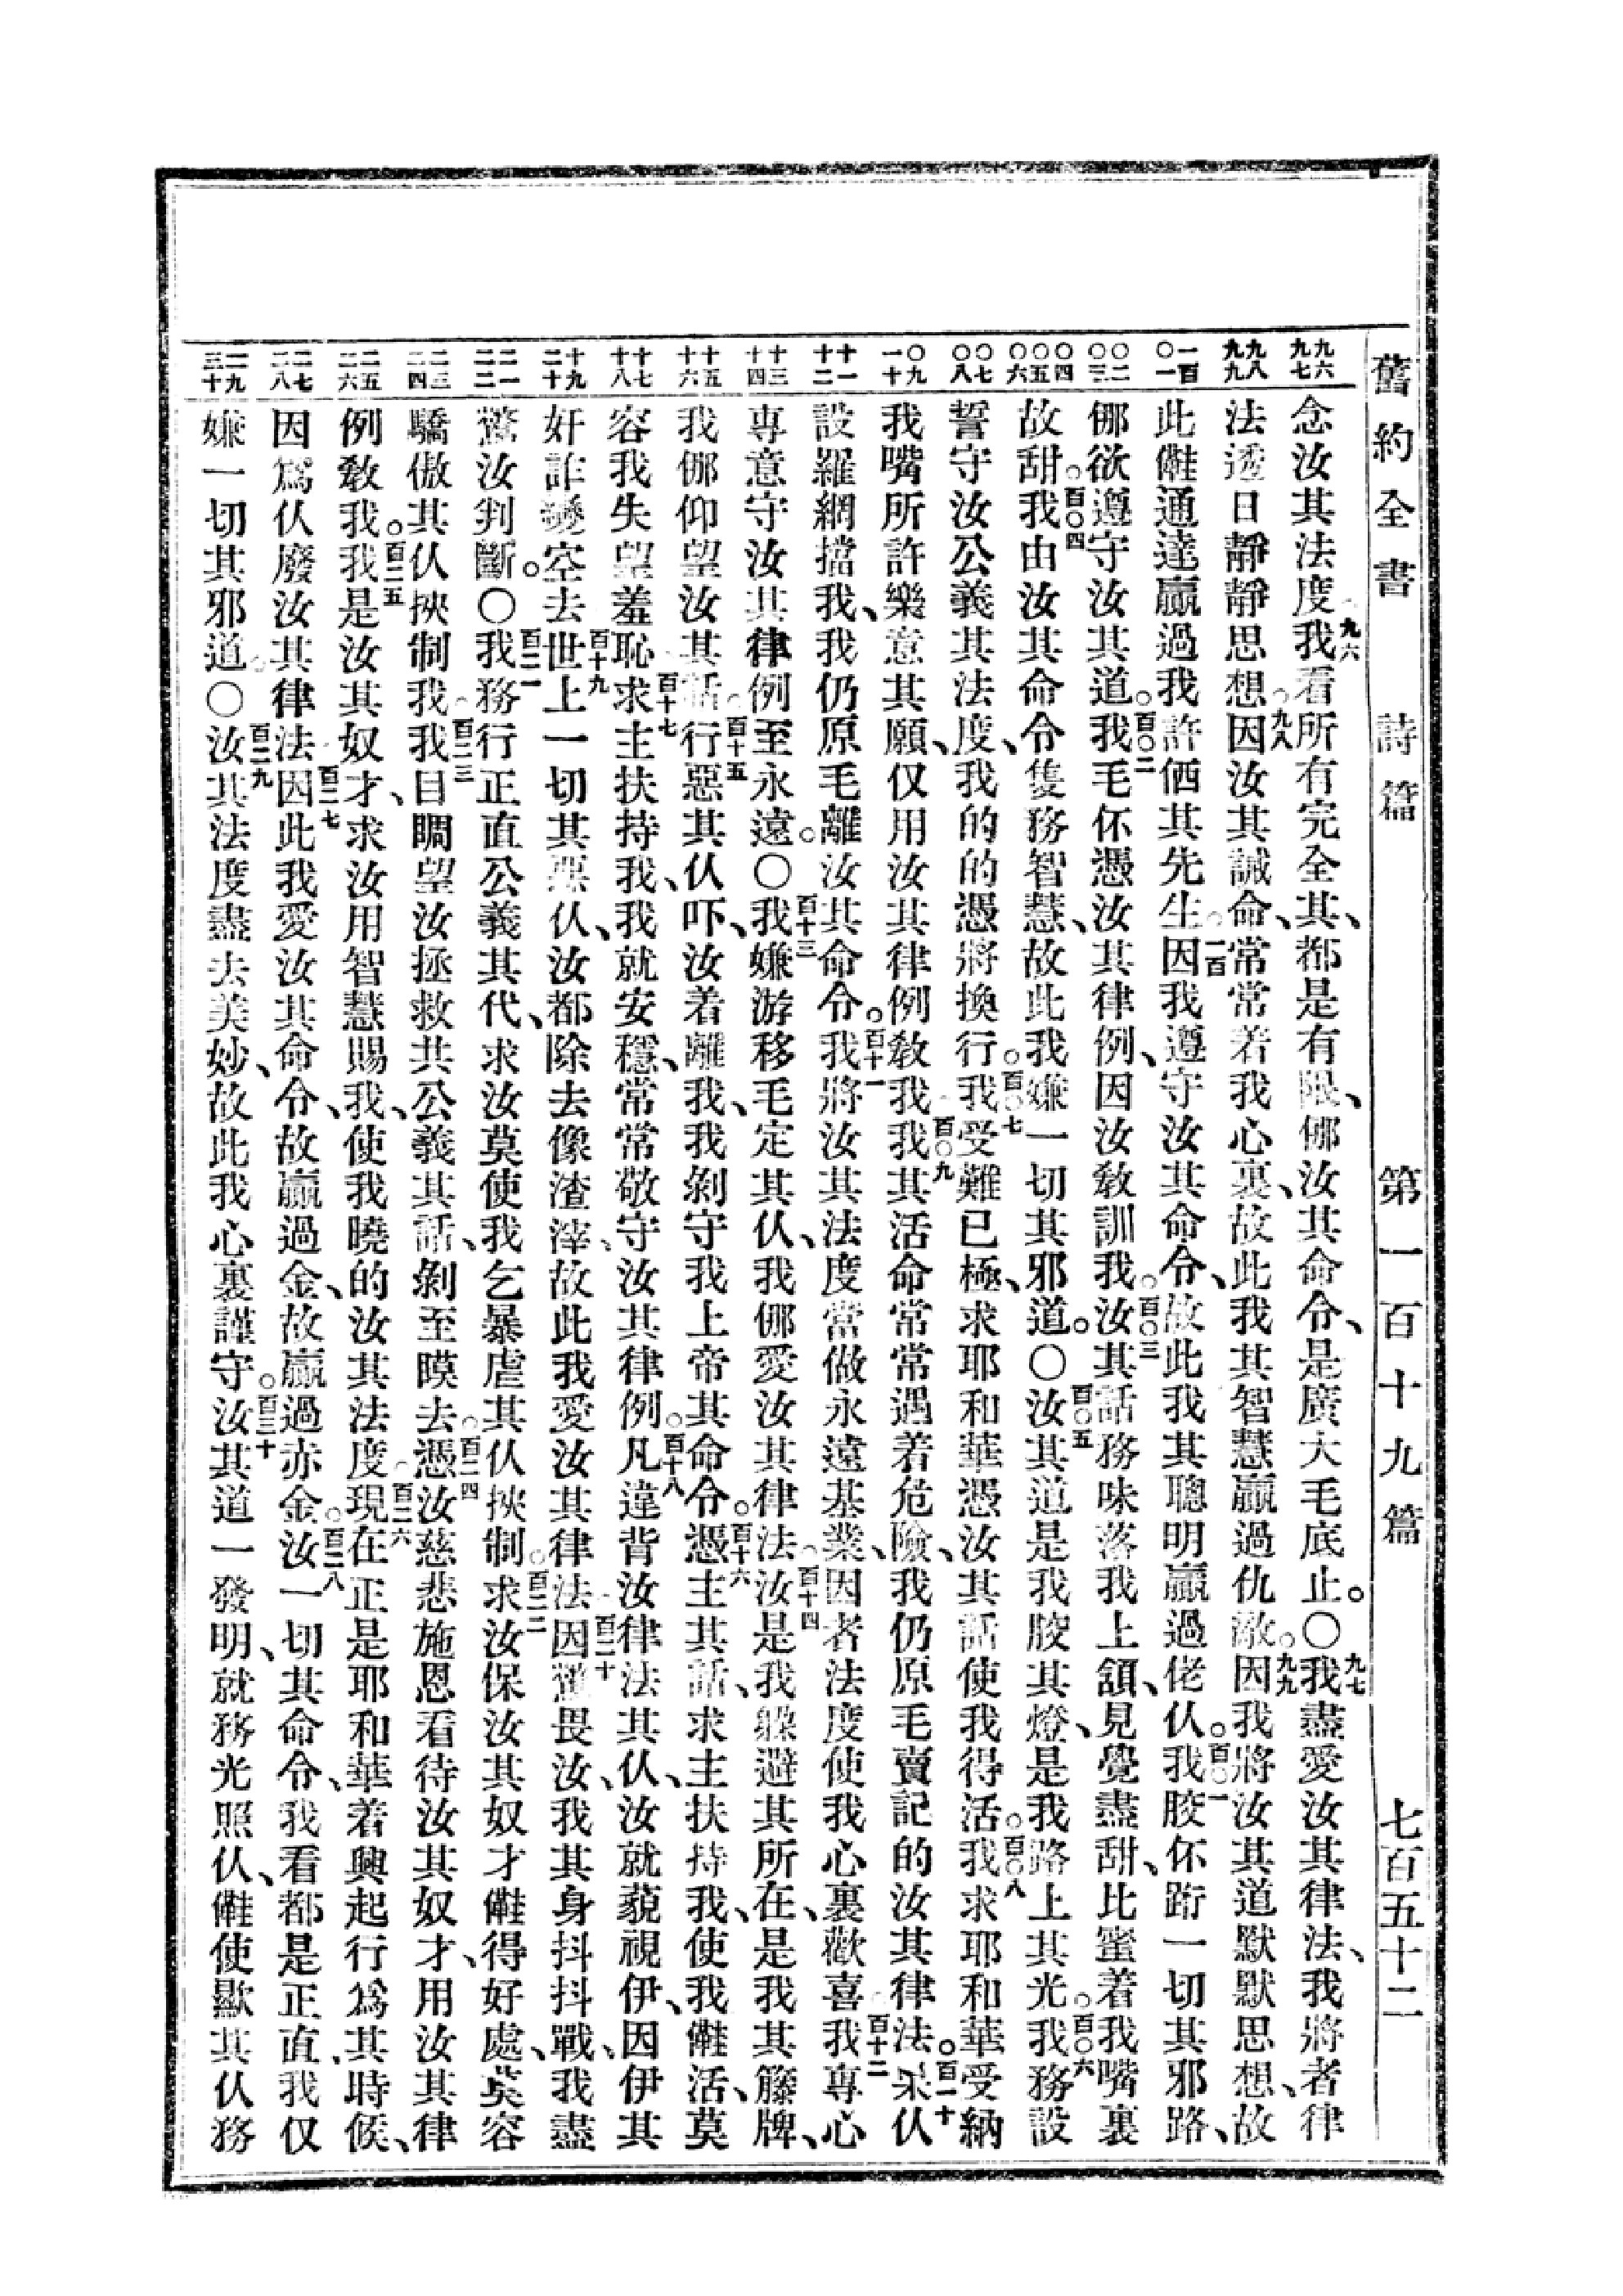 舊約全書 詩篇 第一百十九篇 七百五十二
九六 九七
念汝其法度九六我看所有完全其、都是有限、㑚汝其命令、是廣大毛底止。〇九七我盡愛汝其律法、我將者律
九八 九九
法透日靜靜思想。九八因汝其誡命、常常着我心裏、故此我其智慧贏過仇敵。九九因我將汝其道默默思想、故
一百 〇一
此㒀通達贏過我許偭其先生。一百因我遵守汝其命令、故此我其聰明贏過佬仈。百〇一我骹伓跴一切其邪路、
〇二 〇三
㑚欲遵守汝其道。百〇二我毛伓憑汝其律例、因汝教訓我。百〇三汝其話務味落我上頷、見覺盡甜、比蜜着我嘴裏
〇四 〇五 〇六
故甜。百〇四我由汝其命令隻務智慧、故此我嫌一切其邪道。〇百〇五汝其道是我骹其燈、是我路上其光。百〇六我務設
〇七 〇八
誓守汝公義其法度、我的的憑將換行。百〇七我受難已極、求耶和華憑汝其話使我得活。百〇八我求耶和華受納
〇九 一十
我嘴所許樂意其願、仅用汝其律例教我。百〇九我其活命常常遇着危險、我仍原毛賣記的汝其律法。百一十呆仈
十一 十二
設羅網擋我、我仍原毛離汝其命令。百十一我將汝其法度當做永遠基業、因者法度使我心裏歡喜。百十二我專心
十三 十四
專意守汝其律例至永遠。〇百十三我嫌游移毛定其仈、我㑚愛汝其律法。百十四汝是我躲避其所在、是我其籐牌、
十五 十六
我㑚仰望汝其話。百十五行惡其仈吓、汝着離我、我剝守我上帝其命令。百十六憑主其話、求主扶持我、使我㒀活、莫
十七 十八
容我失望羞恥。百十七求主扶持我、我就安穩、常常敬守汝其律例。百十八凡違背汝律法其仈、汝就藐視伊、因伊其
十九 二十
奸詐變空去。百十九世上一切其惡仈、汝都除去像渣滓、故此我愛汝其律法。百二十因驚畏汝、我其身抖抖戰、我盡
二一 二二
驚汝判斷。〇百二一我務行正直公義其代、求汝莫使我乞暴虐其仈挾制。百二二求汝保汝其奴才㒀得好處、莫容
二三 二四
驕傲其仈挾制我。百二三我目瞯望汝拯救共公義其話、剝至瞙去。百二四憑汝慈悲施恩看待汝其奴才、用汝其律
二五 二六
例教我。百二五我是汝其奴才、求汝用智慧賜我、使我曉的汝其法度。百二六現在正是耶和華着興起行爲其時候、
二七 二八
因爲仈廢汝其律法。百二七因此我愛汝其命令、故贏過金、故贏過赤金。百二八汝一切其命令、我看都是正直、我仅
二九 三十
嫌一切其邪道。〇百二九汝其法度盡去美妙、故此我心裏謹守。百三十汝其道一發明、就務光照仈、㒀使歞其仈務